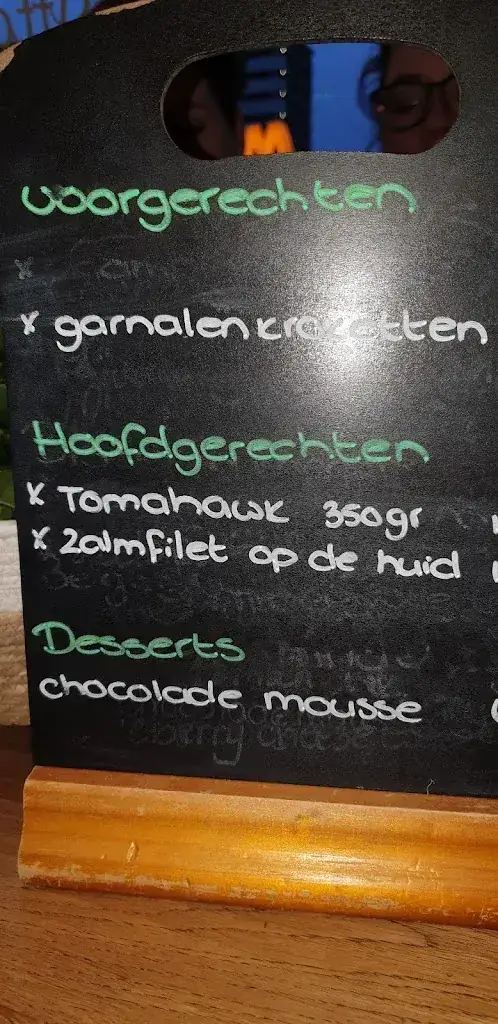 voorgerechten
x garnalen kroketten
Hoofdgerechten
x Tomahawk 350gr
x zalmfilet op de huid
Desserts
chocolade mousse